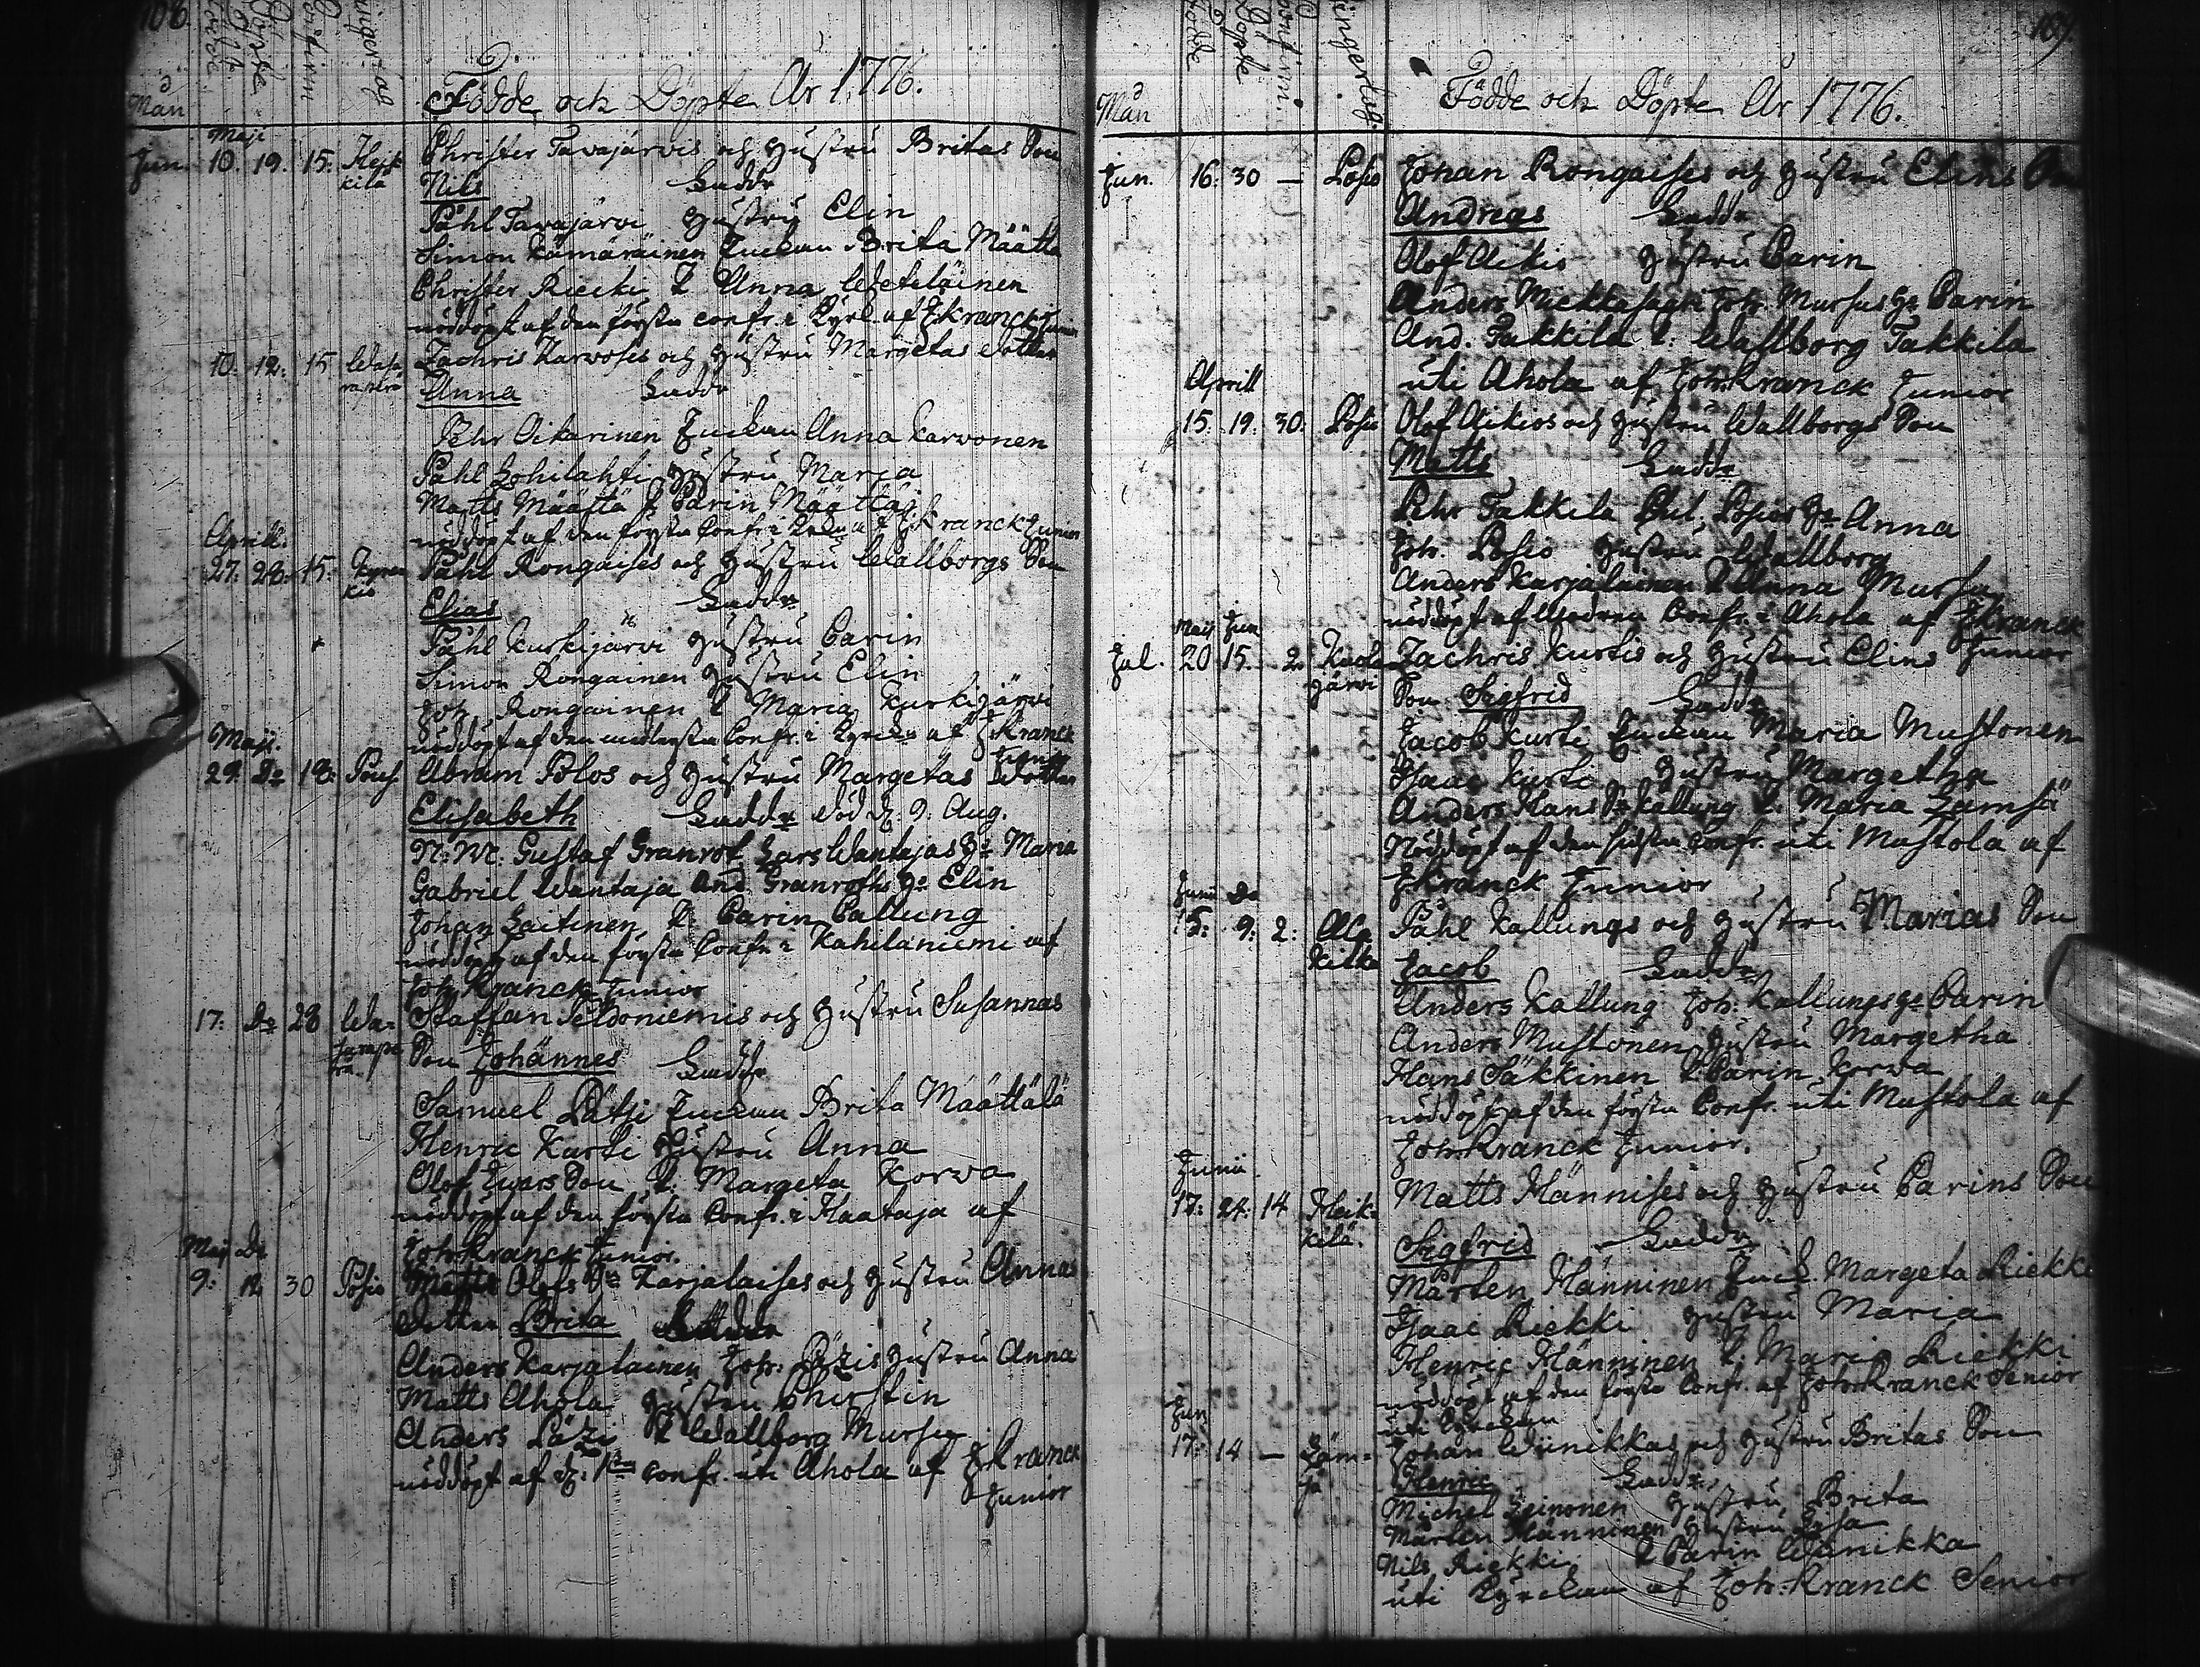 108.
Födde
Döpte
Confirm
Ingerlag
Mån
Födde och Döpte År 1776.
Maji
Jun. 10. 19. 15. Heik
kilä
Christer Tavajärvis och Hustru Britas Son
Nils Faddr
Påhl Tavajärvi Hustru Elin
Simon Kämäräinen Enckan Brita Määttä
Christer Riecki D Anna Weteläinen
nöddöpt af den förste confr. i Kyrk. af J Kranck Junior
10. 12. 15. Wasa
raperä
Zachris Karvoses och Hustru Margetas dotter
Anna Faddr
Pehr Oikarinen Enckan Anna Karvonen
Påhl Lohilahti Hustru Marja
Matts Määttä D Carin Määttä
nöddöpt af den förste Confr. i Kyrk. af J Kranck Junior
Aprill.
27. 28. 15.
Påhl Rongaises och Hustru Wallborgs Son
Elias Faddr
Påhl Kurkijärvi Hustru Carin
Simon Rongainen Hustru Elin
Joh. Rongainen D Maria Kurkijärvi
nöddöpt af den medlerste Confr. i Kyrckn af J Kranck
Junior
Maji.
29. Do 18. Pous.
Abram Polos och Hustru Margetas dotter
Elisabeth Faddr död d. 9. Aug.
N: W: Gustaf Granrot Lars Wantajas H: Maria
Gabriel Wantaja And. Granroths H: Elin
Johan Laitinen D: Carin Callung
nöddöpt af den förste Confr. i Kahilaniemi af
Joh. Kranck Junior
17. Do 28 Wa=
Staffan Seldoniemis och Hustru Susannas
Son Johannes Faddr
Samuel Lätji Enckan Brita Määttälä
Henric Kurti Hustru Anna
Olof Ivars Son D: Margeta Korwa
nöddöpt af den förste Confr. i Haataja af
Joh. Kranck Junior.
Maji Do
9. 12 30 Posio
Matts Olofs Son Karjalaises och Hustru Annas
dotter Brita Faddr
Anders Karjalainen Joh. Lätzis Hustru Anna
Matts Ahola Hustru Christin
Anders Lätzi D Wallborg Mursu
nöddöpt af d: 1ste Confr. uti Ahola af J Kranck
Junior
109.
Födde
Döpte
Confirm.
Ingerlag.
Mån
Födde och Döpte År 1776.
Jun. 16. 30 — Posio
Johan Rongaises och Hustru Elins Son
Andreas Faddr
Olof Aikio Hustru Carin
Anders Mursus H: Carin
And. Takkila D: Wallborg Takkila
uti Ahola af Joh. Kranck Junior
Aprill
15. 19. 30. Posio
Olof Aikios och Hustru Wallborgs Son
Matts Faddr
Pehr Takkila Phil. Posios H: Anna
Joh. Posio Hustru Wallborg
Anders Karjalainen D Anna Mursu
nöddöpt af Modren Confr. i Ahola af J Kranck
Junior
Maij Jun
Jul. 20 15. 2. Kuola
järvi
Zachris Kurtis och Hustru Elins
Son Sigfrid Faddr
Jacob Kurti Enckan Maria Mustonen
Isaac Kurti Hustru Margetha
Anders Hans Sn Kallung D. Maria Lämsä
Nöddöpt af den sidste Confr. uti Mustola af
J Kranck Junior
Junii Do
5. 9. 2. Ala
Kitka
Påhl Kallungs och Hustru Marias Son
Jacob Faddr
Anders Kallung Joh. Kallungs H: Carin
Anders Mustonen Hustru Margetha
Hans Säkkinen D Carin Korwa
nöddöpt af den förste Confr. uti Mustola af
Joh. Kranck Junior.
Junii
17. 24. 14 Heik=
kilä.
Matts Hännises och Hustru Carins Son
Sigfrid Faddr
Mårten Hänninen Enck. Margeta Riekki
Isaac Riekki Hustru Maria
Henric Hänninen D. Maria Riekki
nöddöpt af den förste Confr. af Joh. Kranck Senior
uti Kyrckan
Jun
17. 14 — Läm=
sä
Johan Winikkas och Hustru Britas Son
Henric Faddr
Michel Leinonen Hustru Brita
Mårten Hänninen Hustru Lisa
Nils Riekki D Carin Winikka
uti Kyrckan af Joh. Kranck Senior